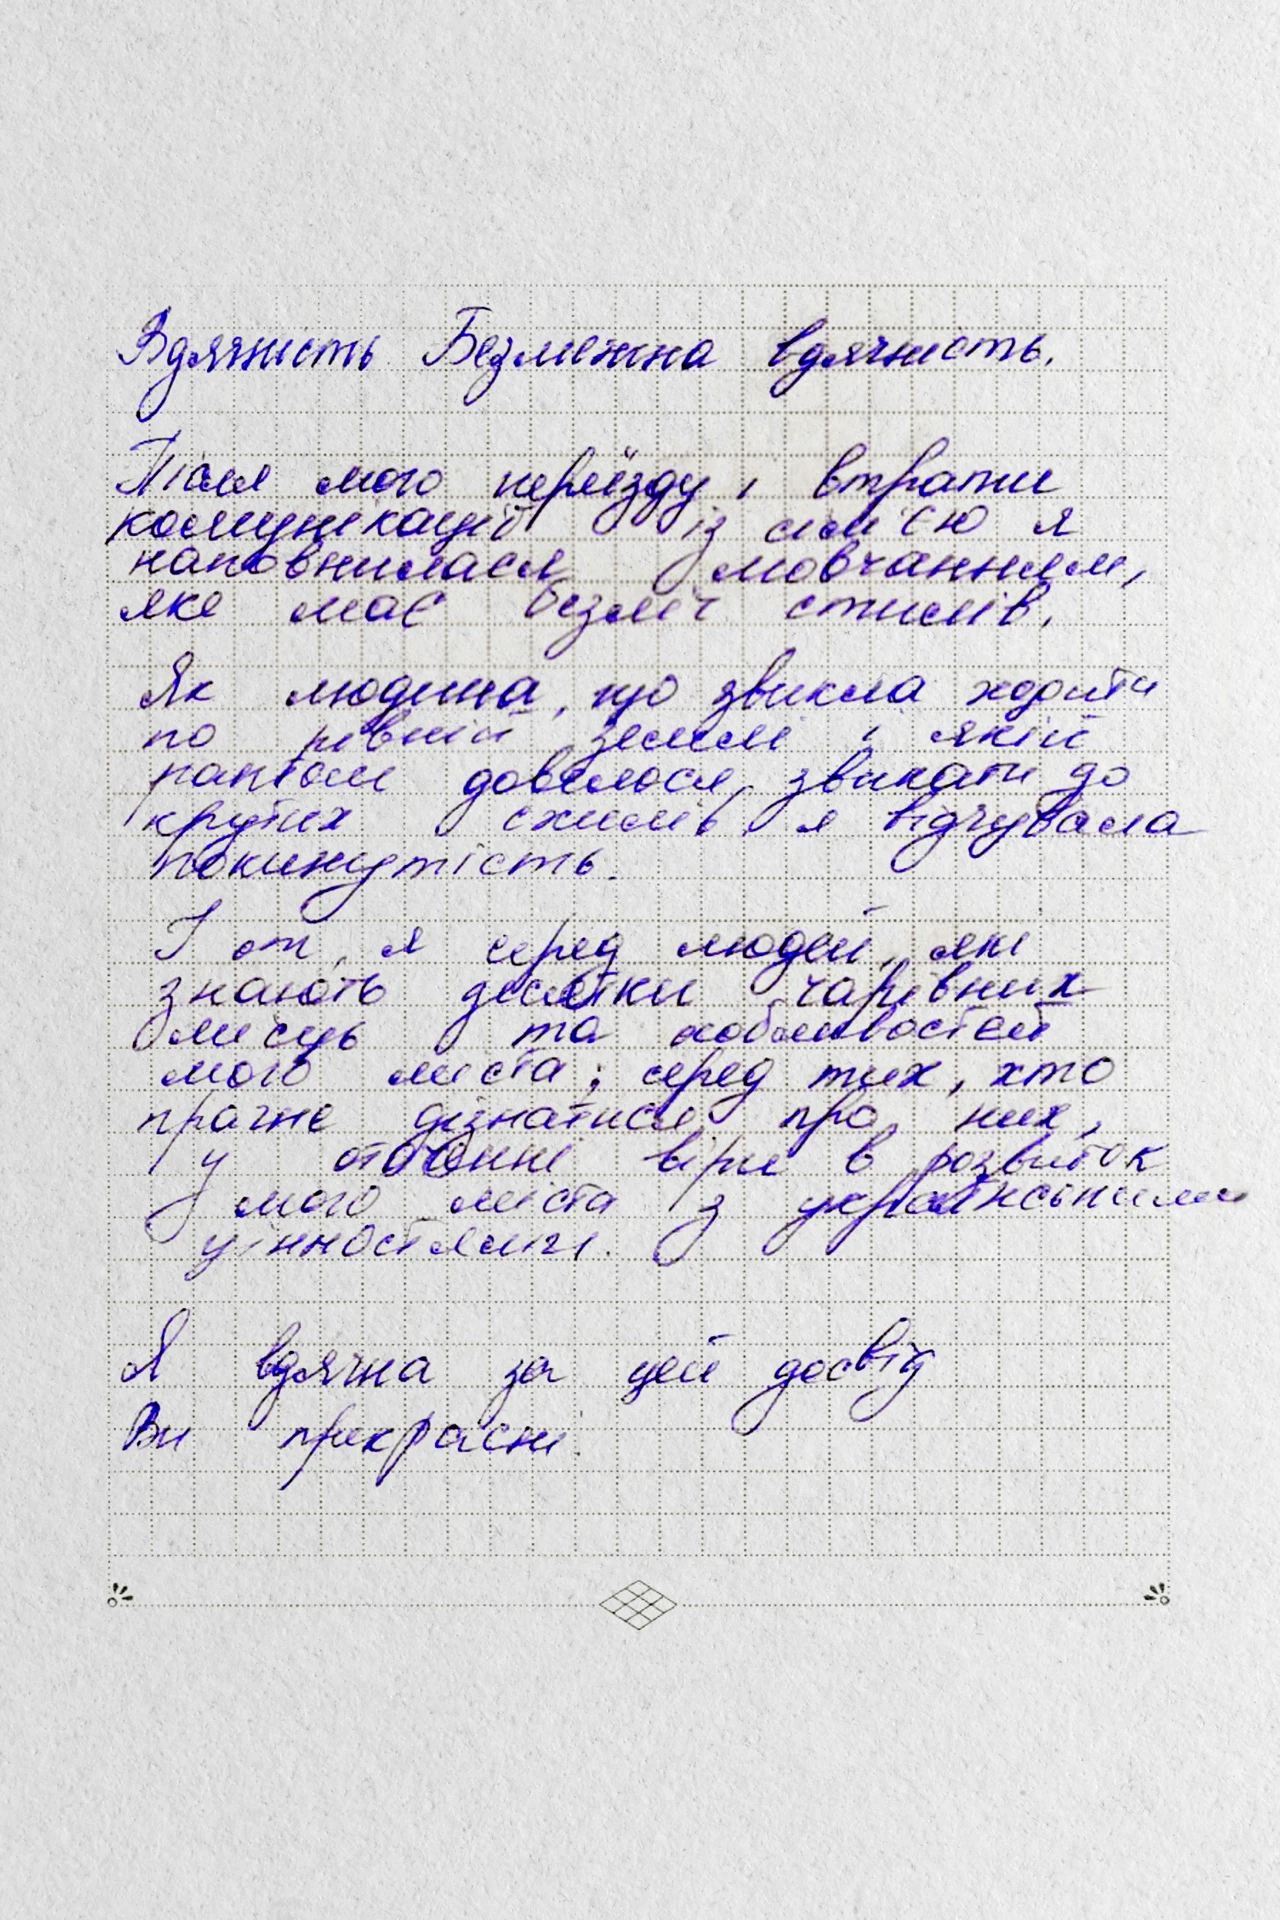 Вдячність Безмежна вдячність.
Після мого переїзду і втрати
комунікації із сім'єю я
наповнилася мовчанням,
яке має безліч стилів.
Як людина, що звикла ходити
по рівній землі і якій
раптом довелося звикати до
крутих схилів, я відчувала
покинутість.
І от, я серед людей, які
знають десятки чарівних
місць та особливостей
мого міста; серед тих, хто
прагне дізнатися про них,
у оточенні віри в розвиток
мого міста з українськими
цінностями.
Я вдячна за цей досвід
Ви прекрасні.